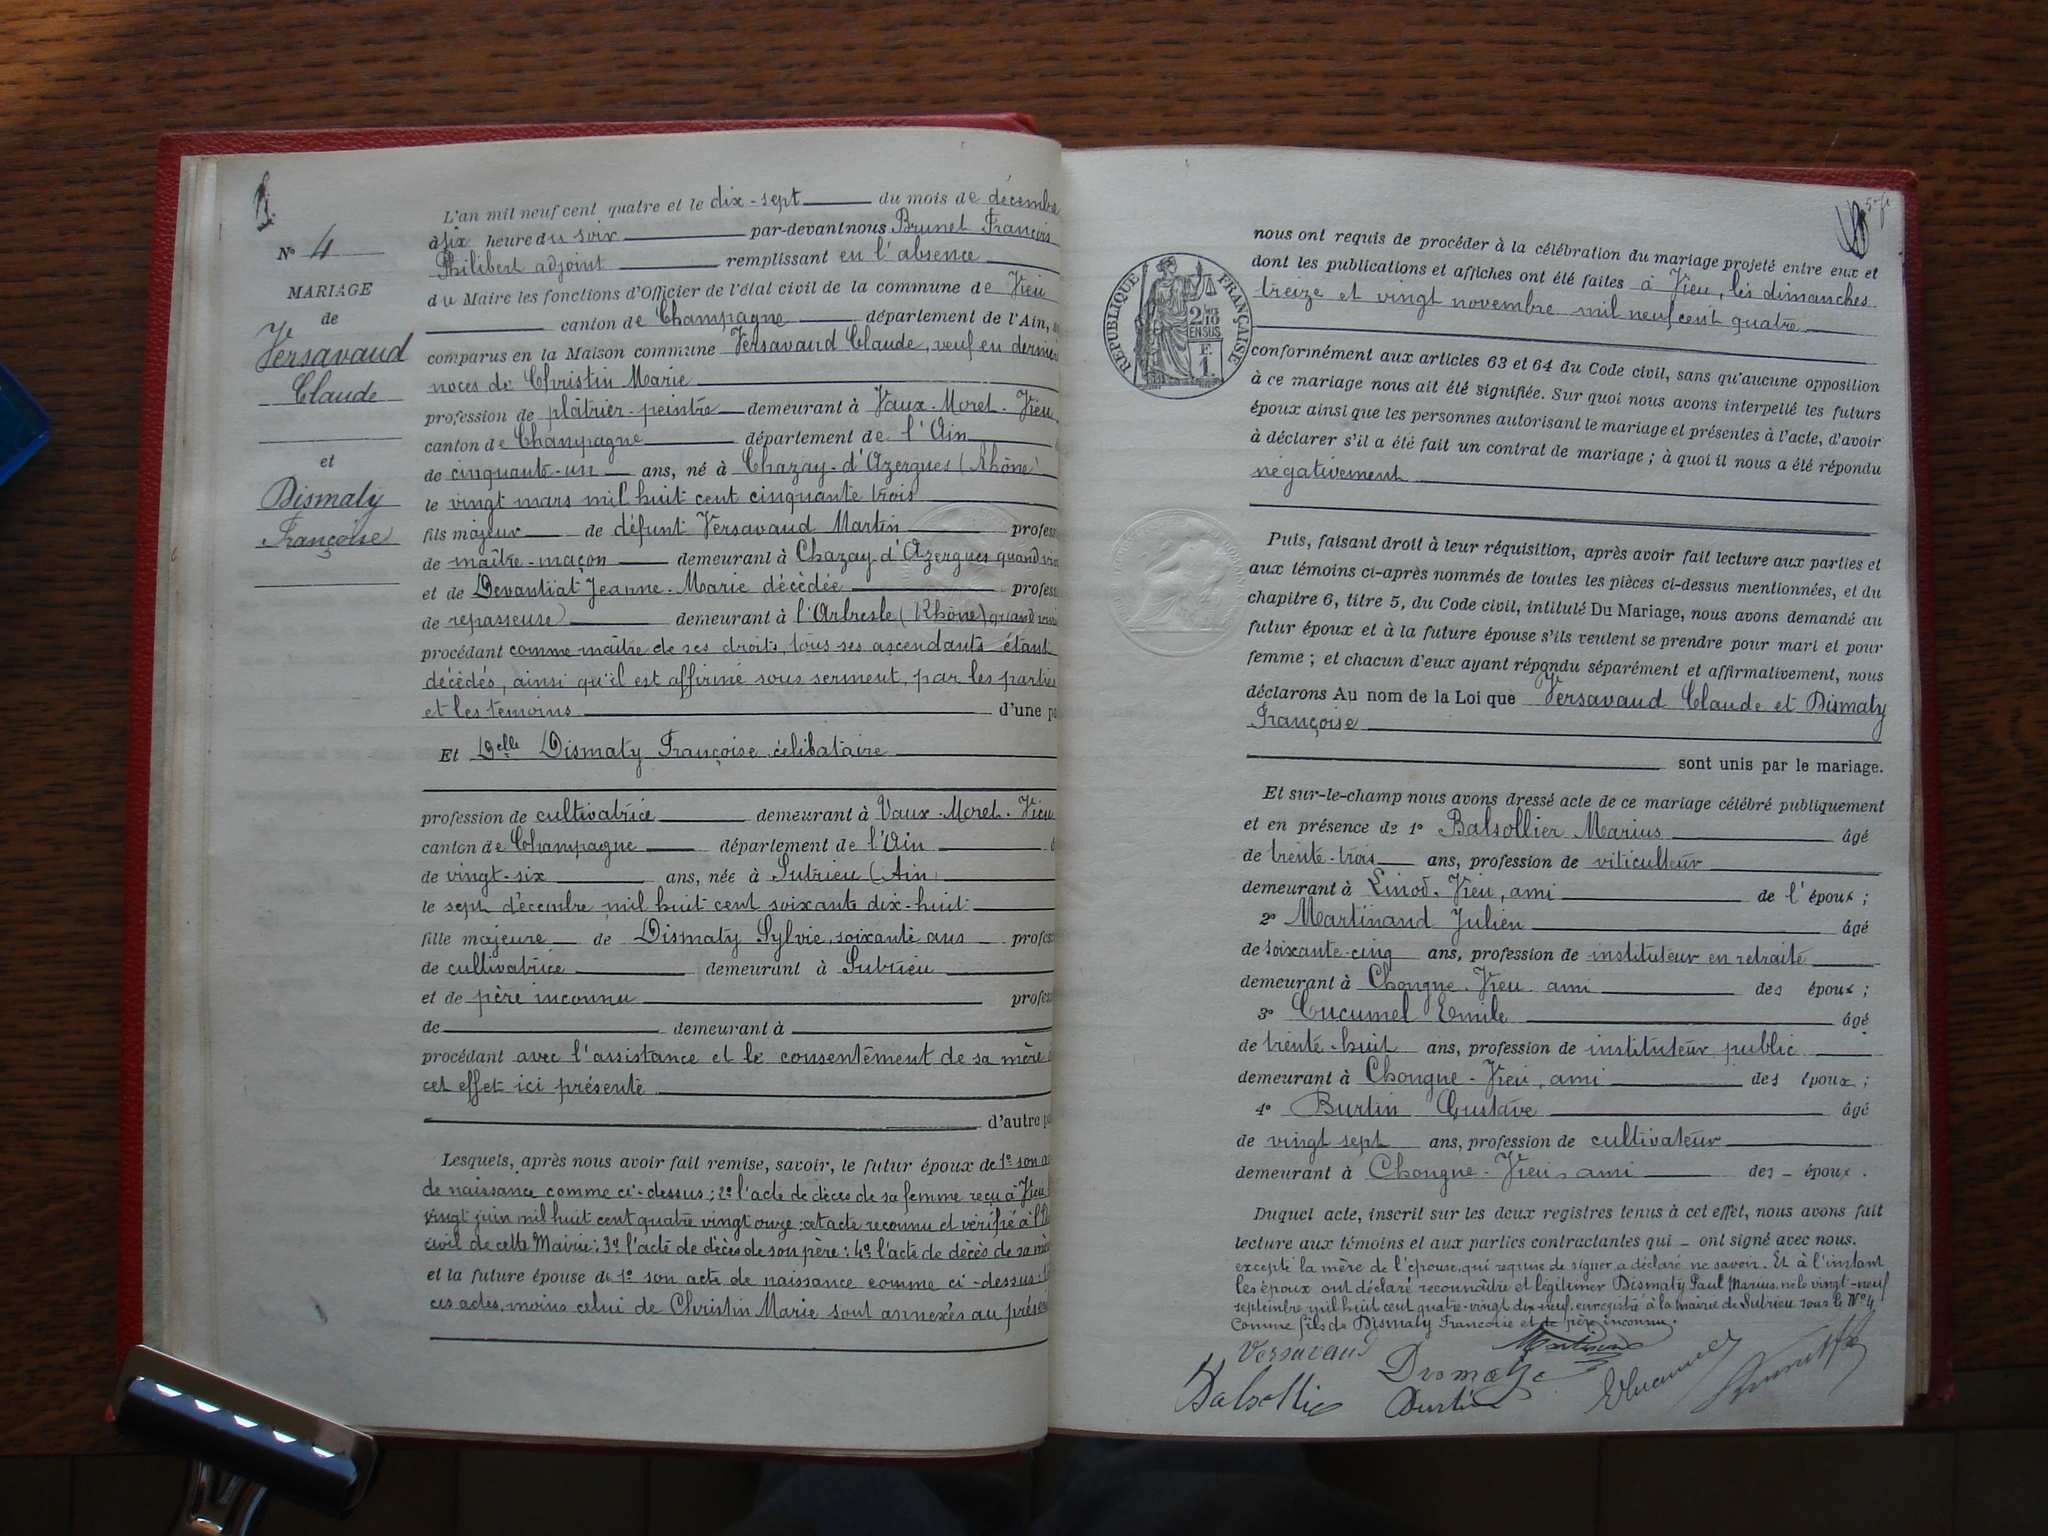 Nº 4
MARIAGE
de
Versavaud
Claude
et
Dismaty
Françoise
L'an mil neuf cent quatre et le dix-sept du mois de décembre
à six heure du soir par-devant nous Brunet François
Philibert adjoint remplissant en l'absence
du Maire les fonctions d'Officier de l'état civil de la commune de Vieu
canton de Champagne département de l'Ain,
comparus en la Maison commune Versavaud Claude, veuf en dernière
noces de Christin Marie
profession de plâtrier-peintre demeurant à Vaux-Moret-Vieu
canton de Champagne département de l'Ain
de cinquante-un ans, né à Chazay-d'Azergues (Rhône)
le vingt mars mil huit cent cinquante trois
fils majeur de défunt Versavaud Martin profess
de maître-maçon demeurant à Chazay-d'Azergues quand viv
et de Devantiat Jeanne-Marie décédée profess
de repasseuse demeurant à l'Arbresle (Rhône) quand
procédant comme maître de ses droits, tous ses ascendants étant
décédés, ainsi qu'il est affirmé sous serment, par les parties
et les témoins d'une pa
Et Delle Dismaty Françoise célibataire
profession de cultivatrice demeurant à Vaux-Moret-Vieu
canton de Champagne département de l'Ain
de vingt-six ans, née à Sutrieu (Ain)
le sept décembre mil huit cent soixante dix-huit
fille majeure de Dismaty Sylvie, soixante ans profess
de cultivatrice demeurant à Sutrieu
et de père inconnu profess
de demeurant à
procédant avec l'assistance et le consentement de sa mère à
cet effet ici présente
d'autre pa
Lesquels, après nous avoir fait remise, savoir, le futur époux de 1º son ac
de naissance comme ci-dessus; 2º l'acte de décès de sa femme reçu à Vieu
vingt juin mil huit cent quatre vingt onze: cet acte reconnu et vérifié à l'
civil de cette Mairie; 3º l'acte de décès de son père; 4º l'acte de décès de sa mè
et la future épouse de 1º son acte de naissance comme ci-dessus:
ces actes, moins celui de Christin Marie sont annexés au présen
RÉPUBLIQUE FRANÇAISE
2/10
EN SUS
F.
1.
nous ont requis de procéder à la célébration du mariage projeté entre eux et
dont les publications et affiches ont été faites à Vieu, les dimanches
treize et vingt novembre mil neuf cent quatre
conformément aux articles 63 et 64 du Code civil, sans qu'aucune opposition
à ce mariage nous ait été signifiée. Sur quoi nous avons interpellé les futurs
époux ainsi que les personnes autorisant le mariage et présentes à l'acte, d'avoir
à déclarer s'il a été fait un contrat de mariage; à quoi il nous a été répondu
négativement
Puis, faisant droit à leur réquisition, après avoir fait lecture aux parties et
aux témoins ci-après nommés de toutes les pièces ci-dessus mentionnées, et du
chapitre 6, titre 5, du Code civil, intitulé Du Mariage, nous avons demandé au
futur époux et à la future épouse s'ils veulent se prendre pour mari et pour
femme; et chacun d'eux ayant répondu séparément et affirmativement, nous
déclarons Au nom de la Loi que Versavaud Claude et Dismaty
Françoise
sont unis par le mariage.
Et sur-le-champ nous avons dressé acte de ce mariage célébré publiquement
et en présence de 1º Balsollier Marius âgé
de trente-trois ans, profession de viticulteur
demeurant à Linod-Vieu, ami de l'époux;
2º Martinand Julien âgé
de soixante-cinq ans, profession de instituteur en retraite
demeurant à Chongne-Vieu ami des époux;
3º Cucumel Emile âgé
de trente-huit ans, profession de instituteur public
demeurant à Chongne-Vieu, ami des époux;
4º Burtin Gustave âgé
de vingt sept ans, profession de cultivateur
demeurant à Chongne-Vieu, ami des époux.
Duquel acte, inscrit sur les deux registres tenus à cet effet, nous avons fait
lecture aux témoins et aux parties contractantes qui ont signé avec nous.
excepté la mère de l'épouse, qui requise de signer, a déclaré ne savoir. Et à l'instant
les époux ont déclaré reconnaître et légitimer Dismaty Paul Marius, né le vingt-neuf
septembre mil huit cent quatre-vingt dix-neuf, enregistré à la mairie de Sutrieu sous le Nº 4
Comme fils de Dismaty Françoise et de père inconnu.
Versavaud
Martinand
Balsollier
Burtin